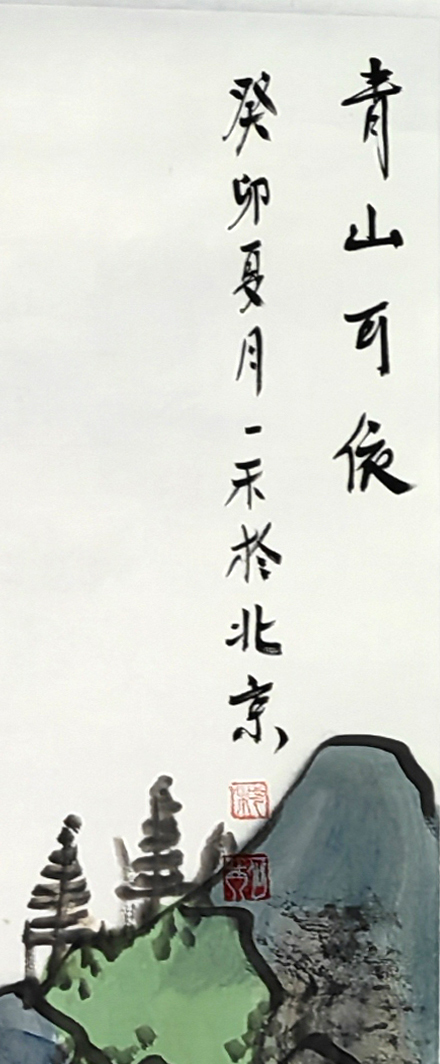 青山可依
癸卯夏月一禾於北京